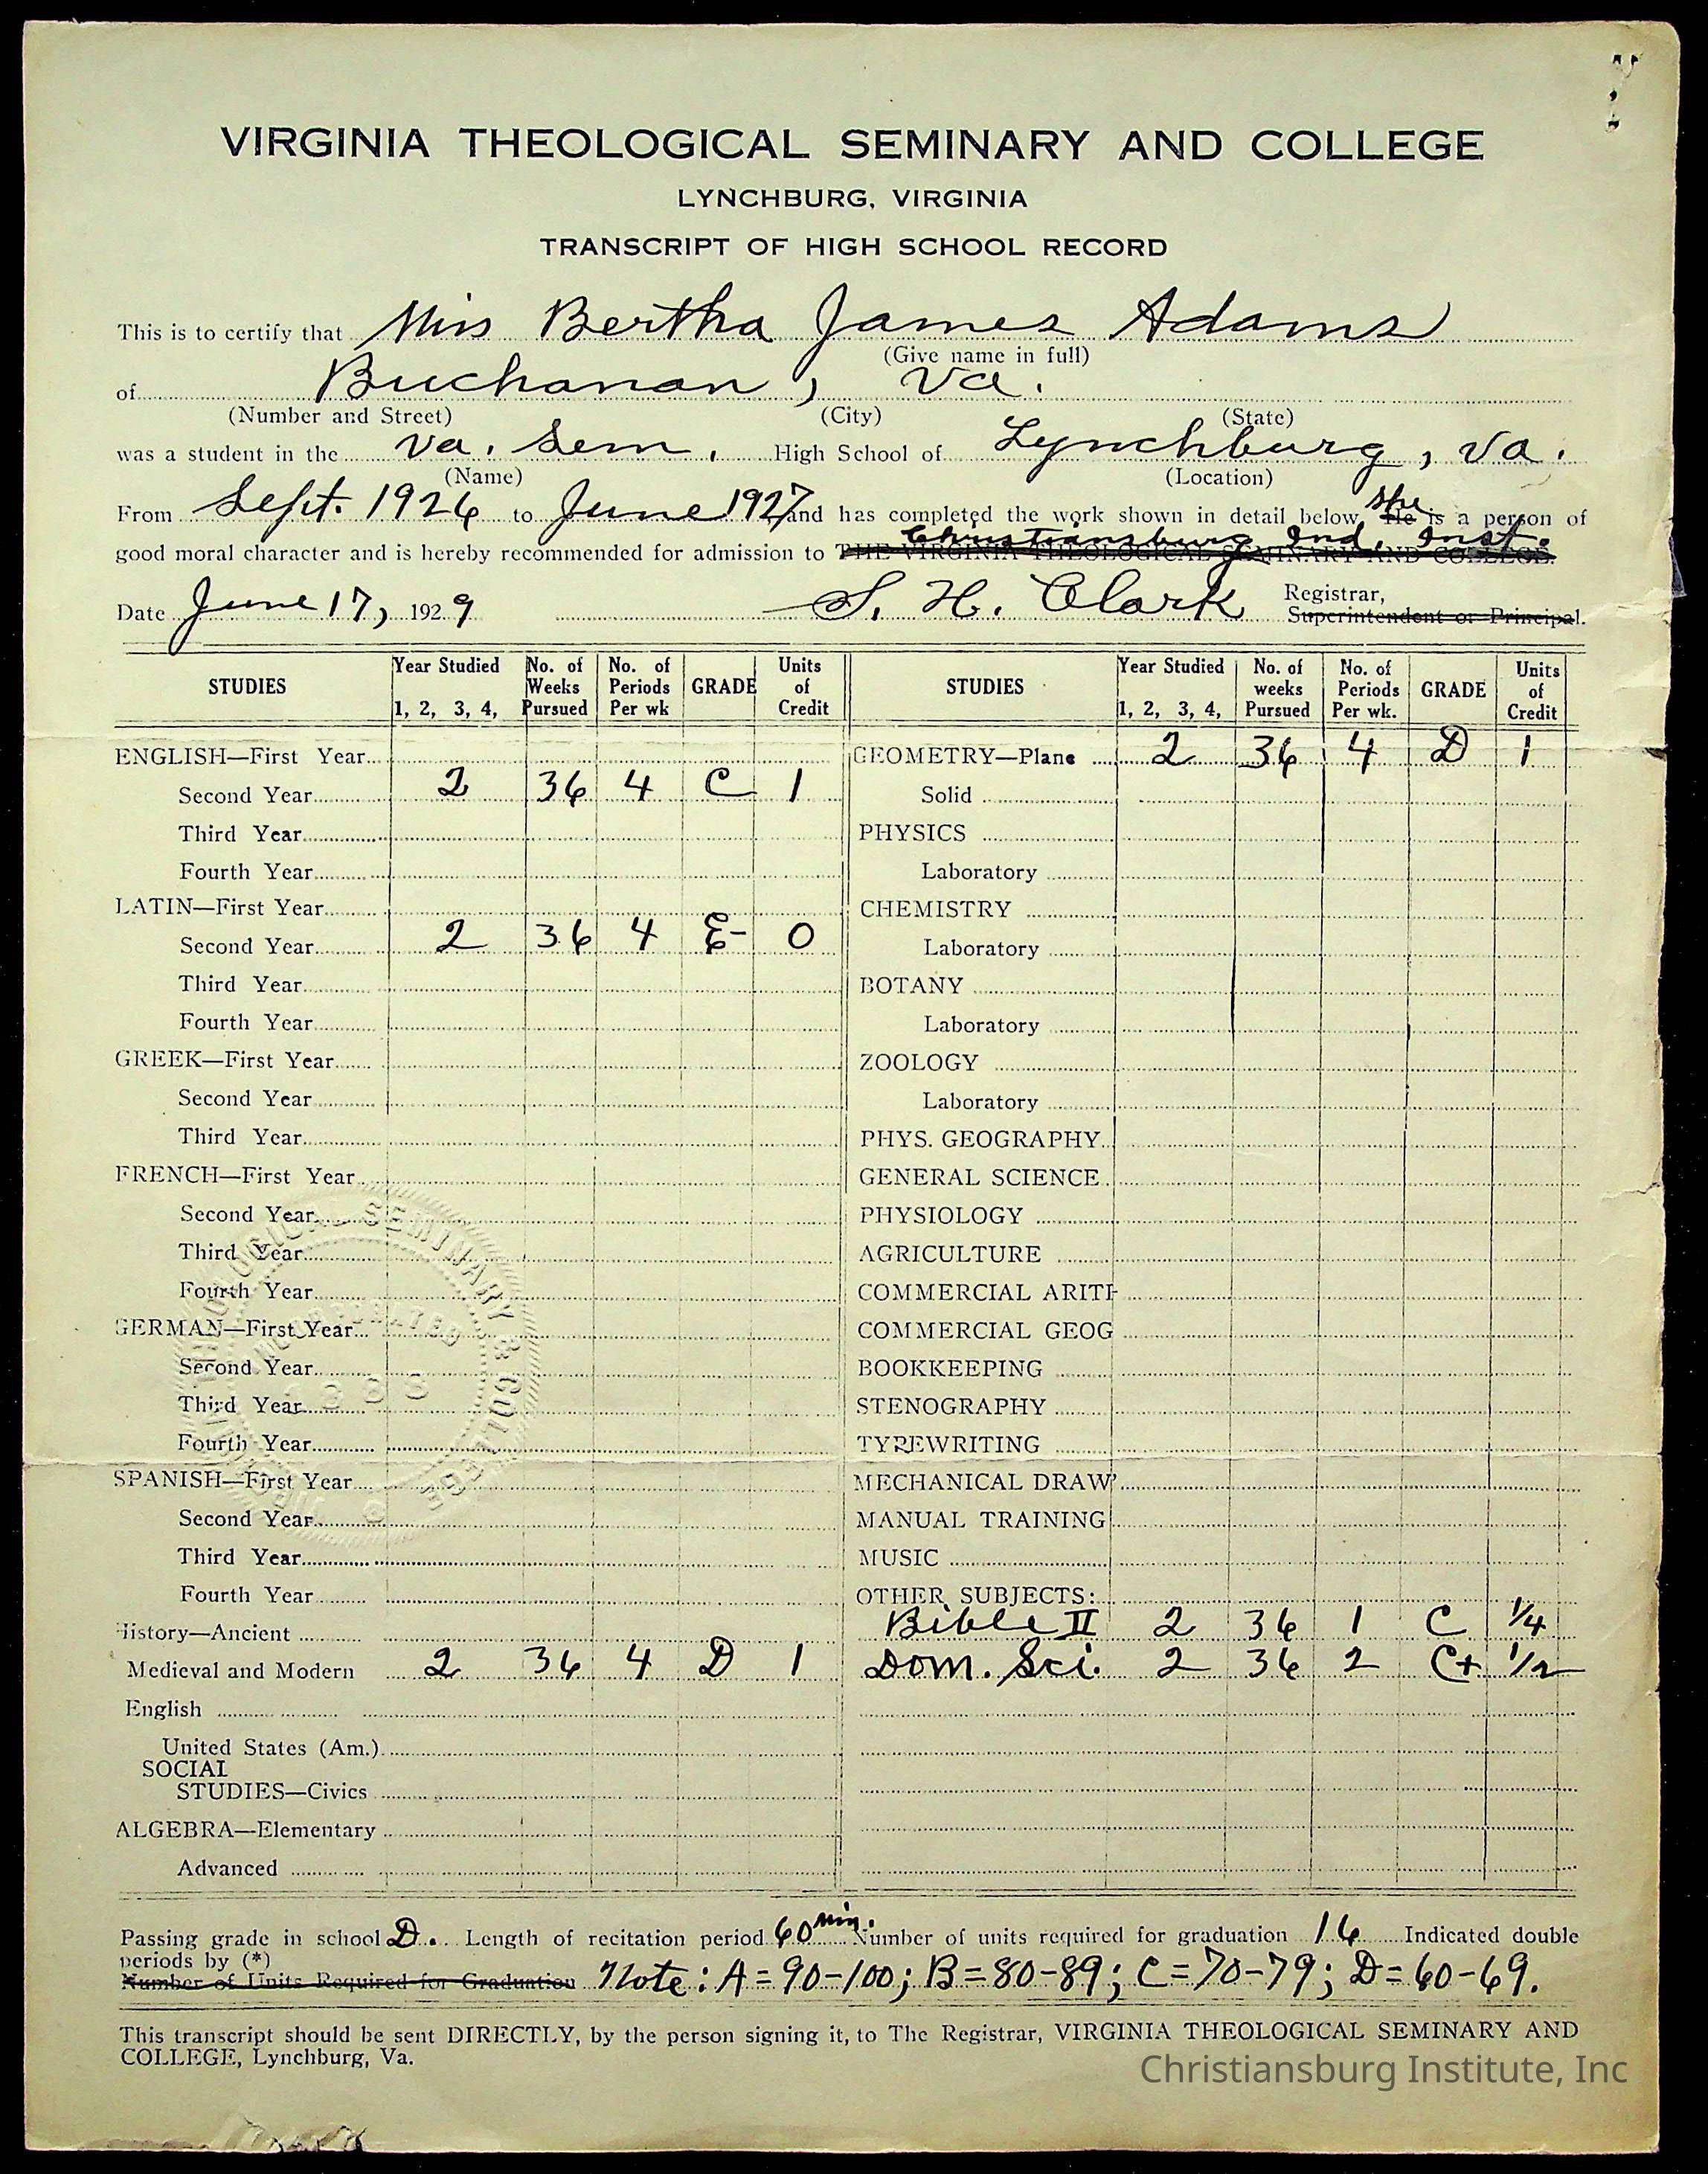 VIRGINIA THEOLOGICAL SEMINARY AND COLLEGE
LYNCHBURG, VIRGINIA
TRANSCRIPT OF HIGH SCHOOL RECORD
This is to certify that Miss Bertha James Adams
(Give name in full)
of Buchanan, Va.
(Number and Street) (City) (State)
was a student in the Va. Sem. High School of Lynchburg, Va.
(Name) (Location)
From Sept. 1926 to June 1927 and has completed the work shown in detail below. She He is a person of
Christiansburg Ind. Inst.
good moral character and is hereby recommended for admission to THE VIRGINIA THEOLOGICAL SEMINARY AND COLLEGE.
Date June 17, 1929 S. H. Clark Registrar,
Superintendent or Principal.
STUDIES Year Studied 1, 2, 3, 4, No. of Weeks Pursued No. of Periods Per wk GRADE Units of Credit STUDIES Year Studied 1, 2, 3, 4, No. of weeks Pursued No. of Periods Per wk. GRADE Units of Credit
ENGLISH—First Year GEOMETRY—Plane 2 36 4 D 1
Second Year 2 36 4 C 1 Solid
Third Year PHYSICS
Fourth Year Laboratory
LATIN—First Year CHEMISTRY
Second Year 2 36 4 E- 0 Laboratory
Third Year BOTANY
Fourth Year Laboratory
GREEK—First Year ZOOLOGY
Second Year Laboratory
Third Year PHYS. GEOGRAPHY
FRENCH—First Year GENERAL SCIENCE
Second Year PHYSIOLOGY
Third Year AGRICULTURE
Fourth Year COMMERCIAL ARITH
GERMAN—First Year COMMERCIAL GEOG
Second Year BOOKKEEPING
Third Year STENOGRAPHY
Fourth Year TYPEWRITING
SPANISH—First Year MECHANICAL DRAW'
Second Year MANUAL TRAINING
Third Year MUSIC
Fourth Year OTHER SUBJECTS:
History—Ancient Bible II 2 36 1 C 1/4
Medieval and Modern 2 36 4 D 1 Dom. Sci. 2 36 2 C+ 1/2
English
United States (Am.)
SOCIAL
STUDIES—Civics
ALGEBRA—Elementary
Advanced
Passing grade in school D. Length of recitation period 60 min. Number of units required for graduation 16 Indicated double
periods by (*)
Number of Units Required for Graduation Note: A = 90-100; B = 80-89; C = 70-79; D = 60-69.
This transcript should be sent DIRECTLY, by the person signing it, to The Registrar, VIRGINIA THEOLOGICAL SEMINARY AND
COLLEGE, Lynchburg, Va.
Christiansburg Institute, Inc